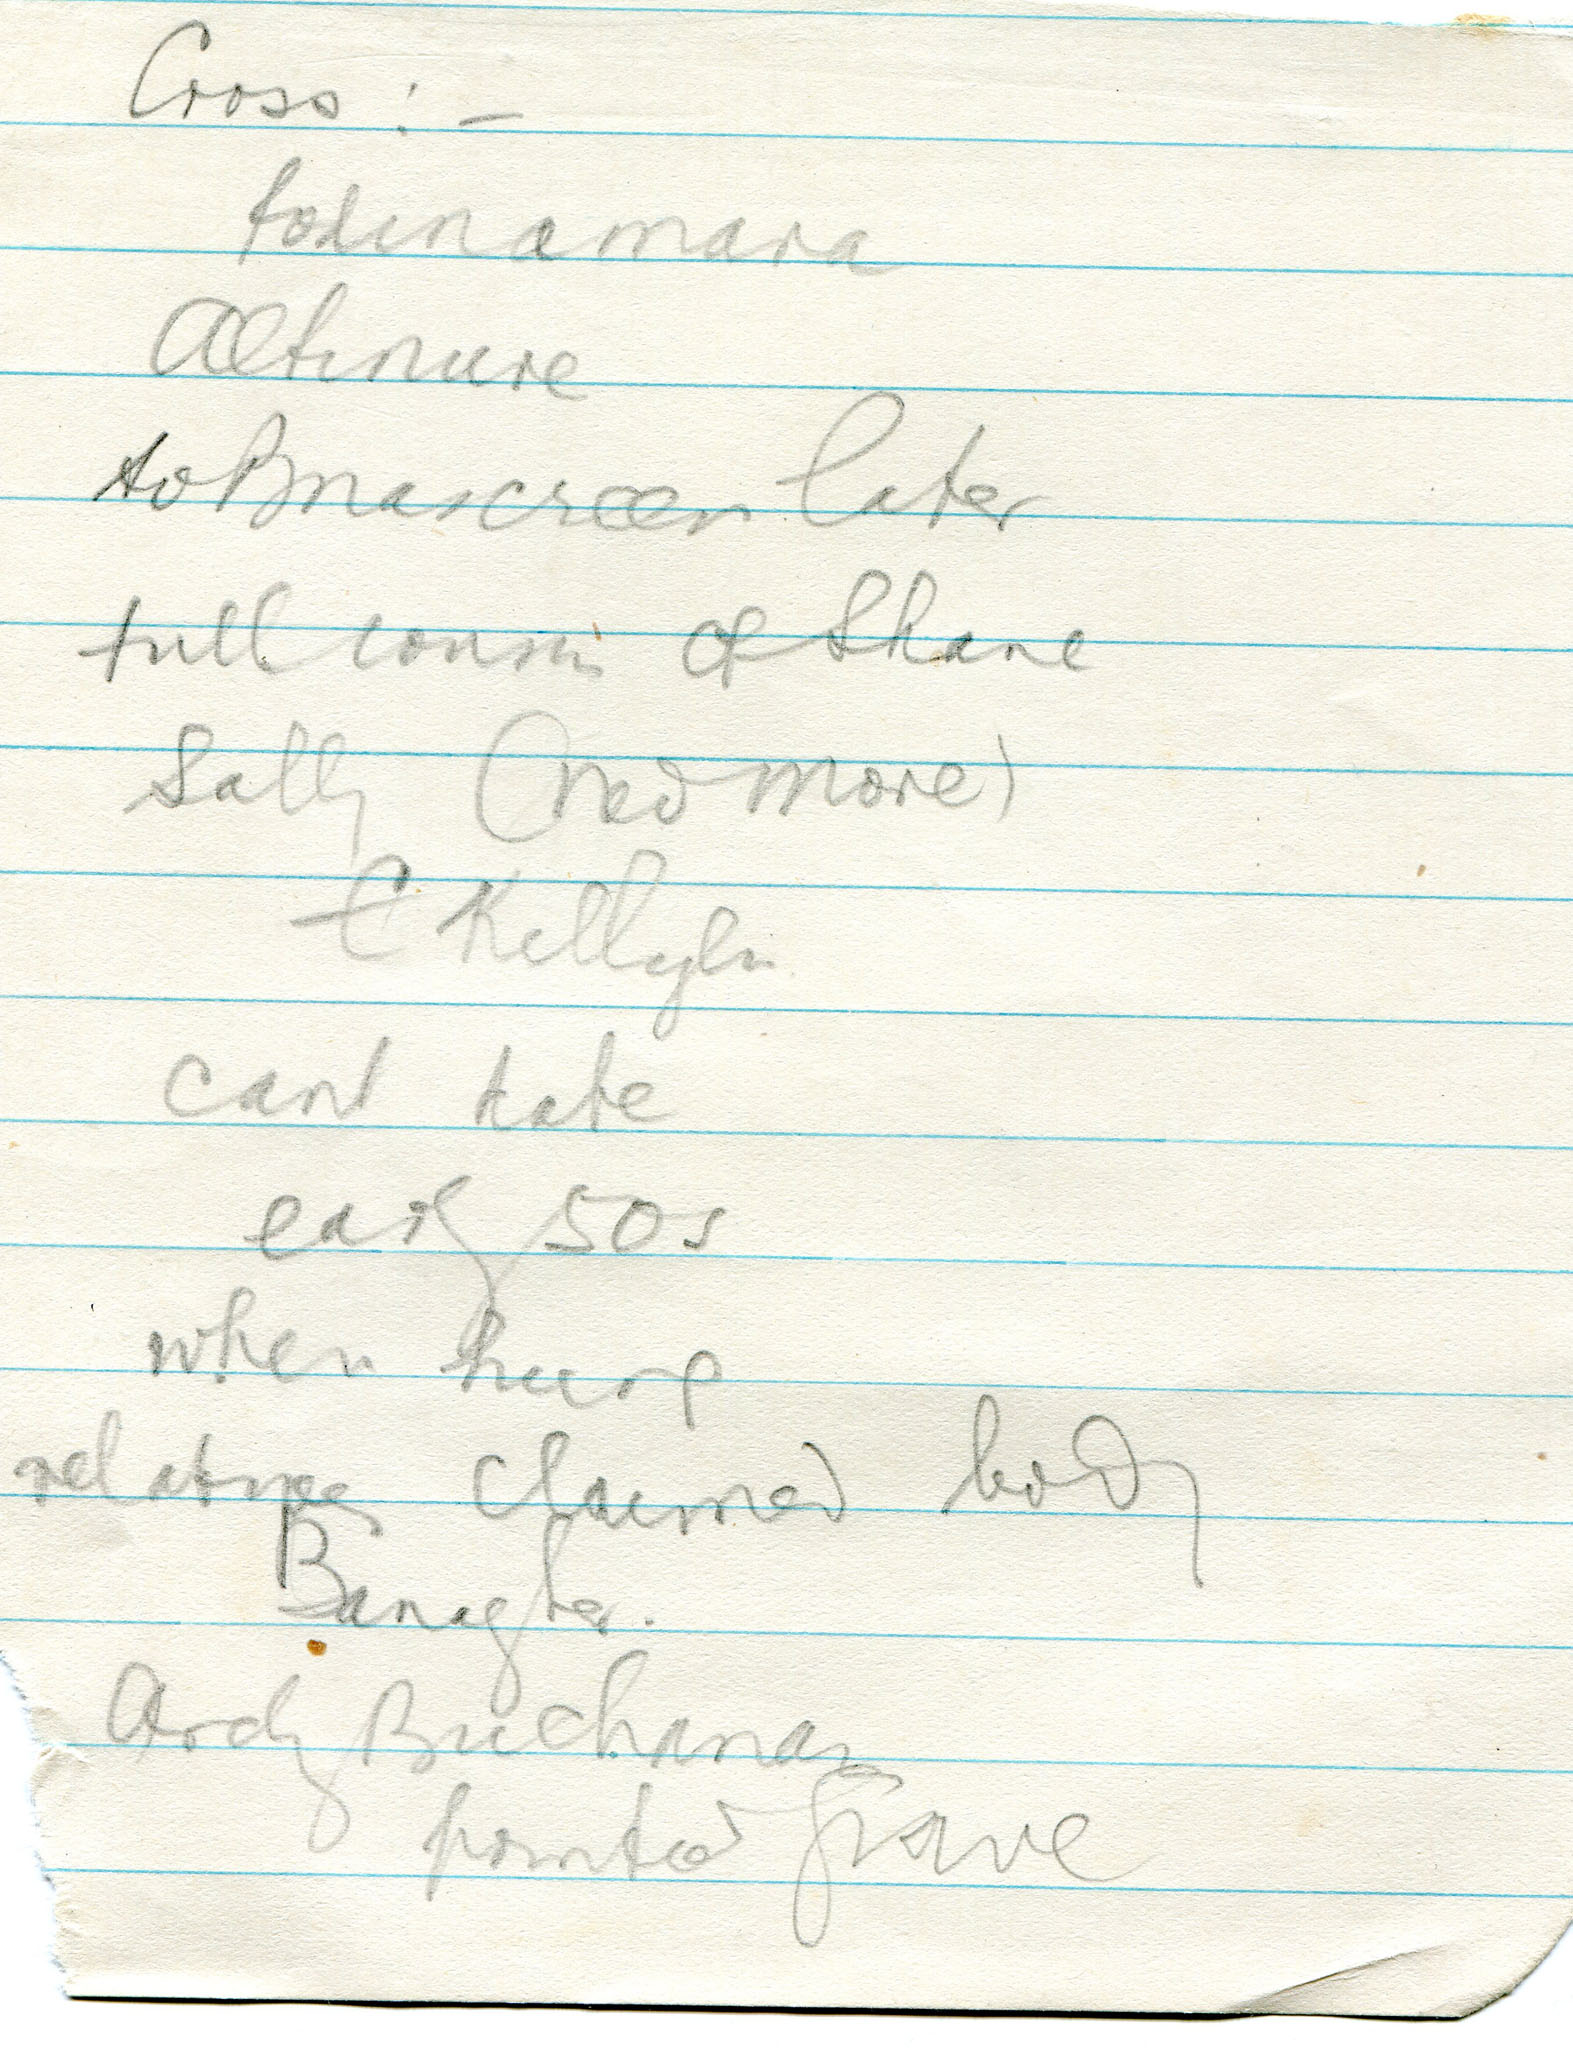 Cross : -
Altinure
to Bnascreen later
full cousin of Shane
Sally (ned more)
C Kelly
cant tate
early 50s
when hung
relatives claimed body
Banagher.
Andy Buchanan
pointed grave